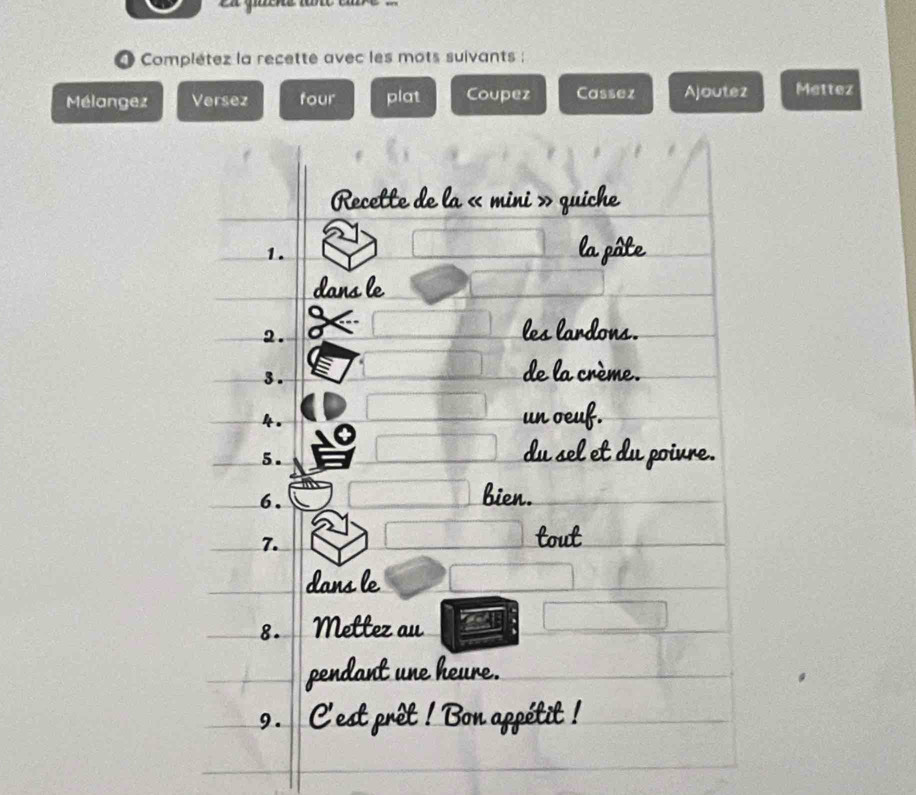 4 Complétez la recette avec les mots suivants :
Mélangez Versez four plat Coupez Cassez Ajoutez Mettez
Recette de la « mini » quiche
1. la pâte
dans le
2. les lardons.
3. de la crème.
4. un oeuf.
5. du sel et du poivre.
6. bien.
7. tout
dans le
8. Mettez au
pendant une heure.
9. C'est prêt ! Bon appétit !